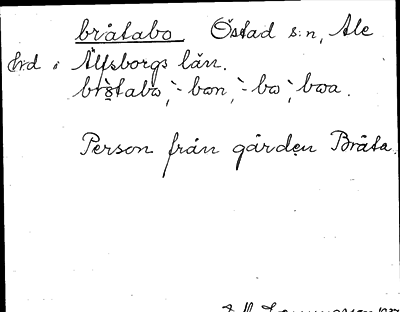 bråtabo Östad s:n, Ale
hrd i Älvsborgs län.
brǫ̀tabo, `-bon, `-bo, `boa.
Person från gården Bråta.